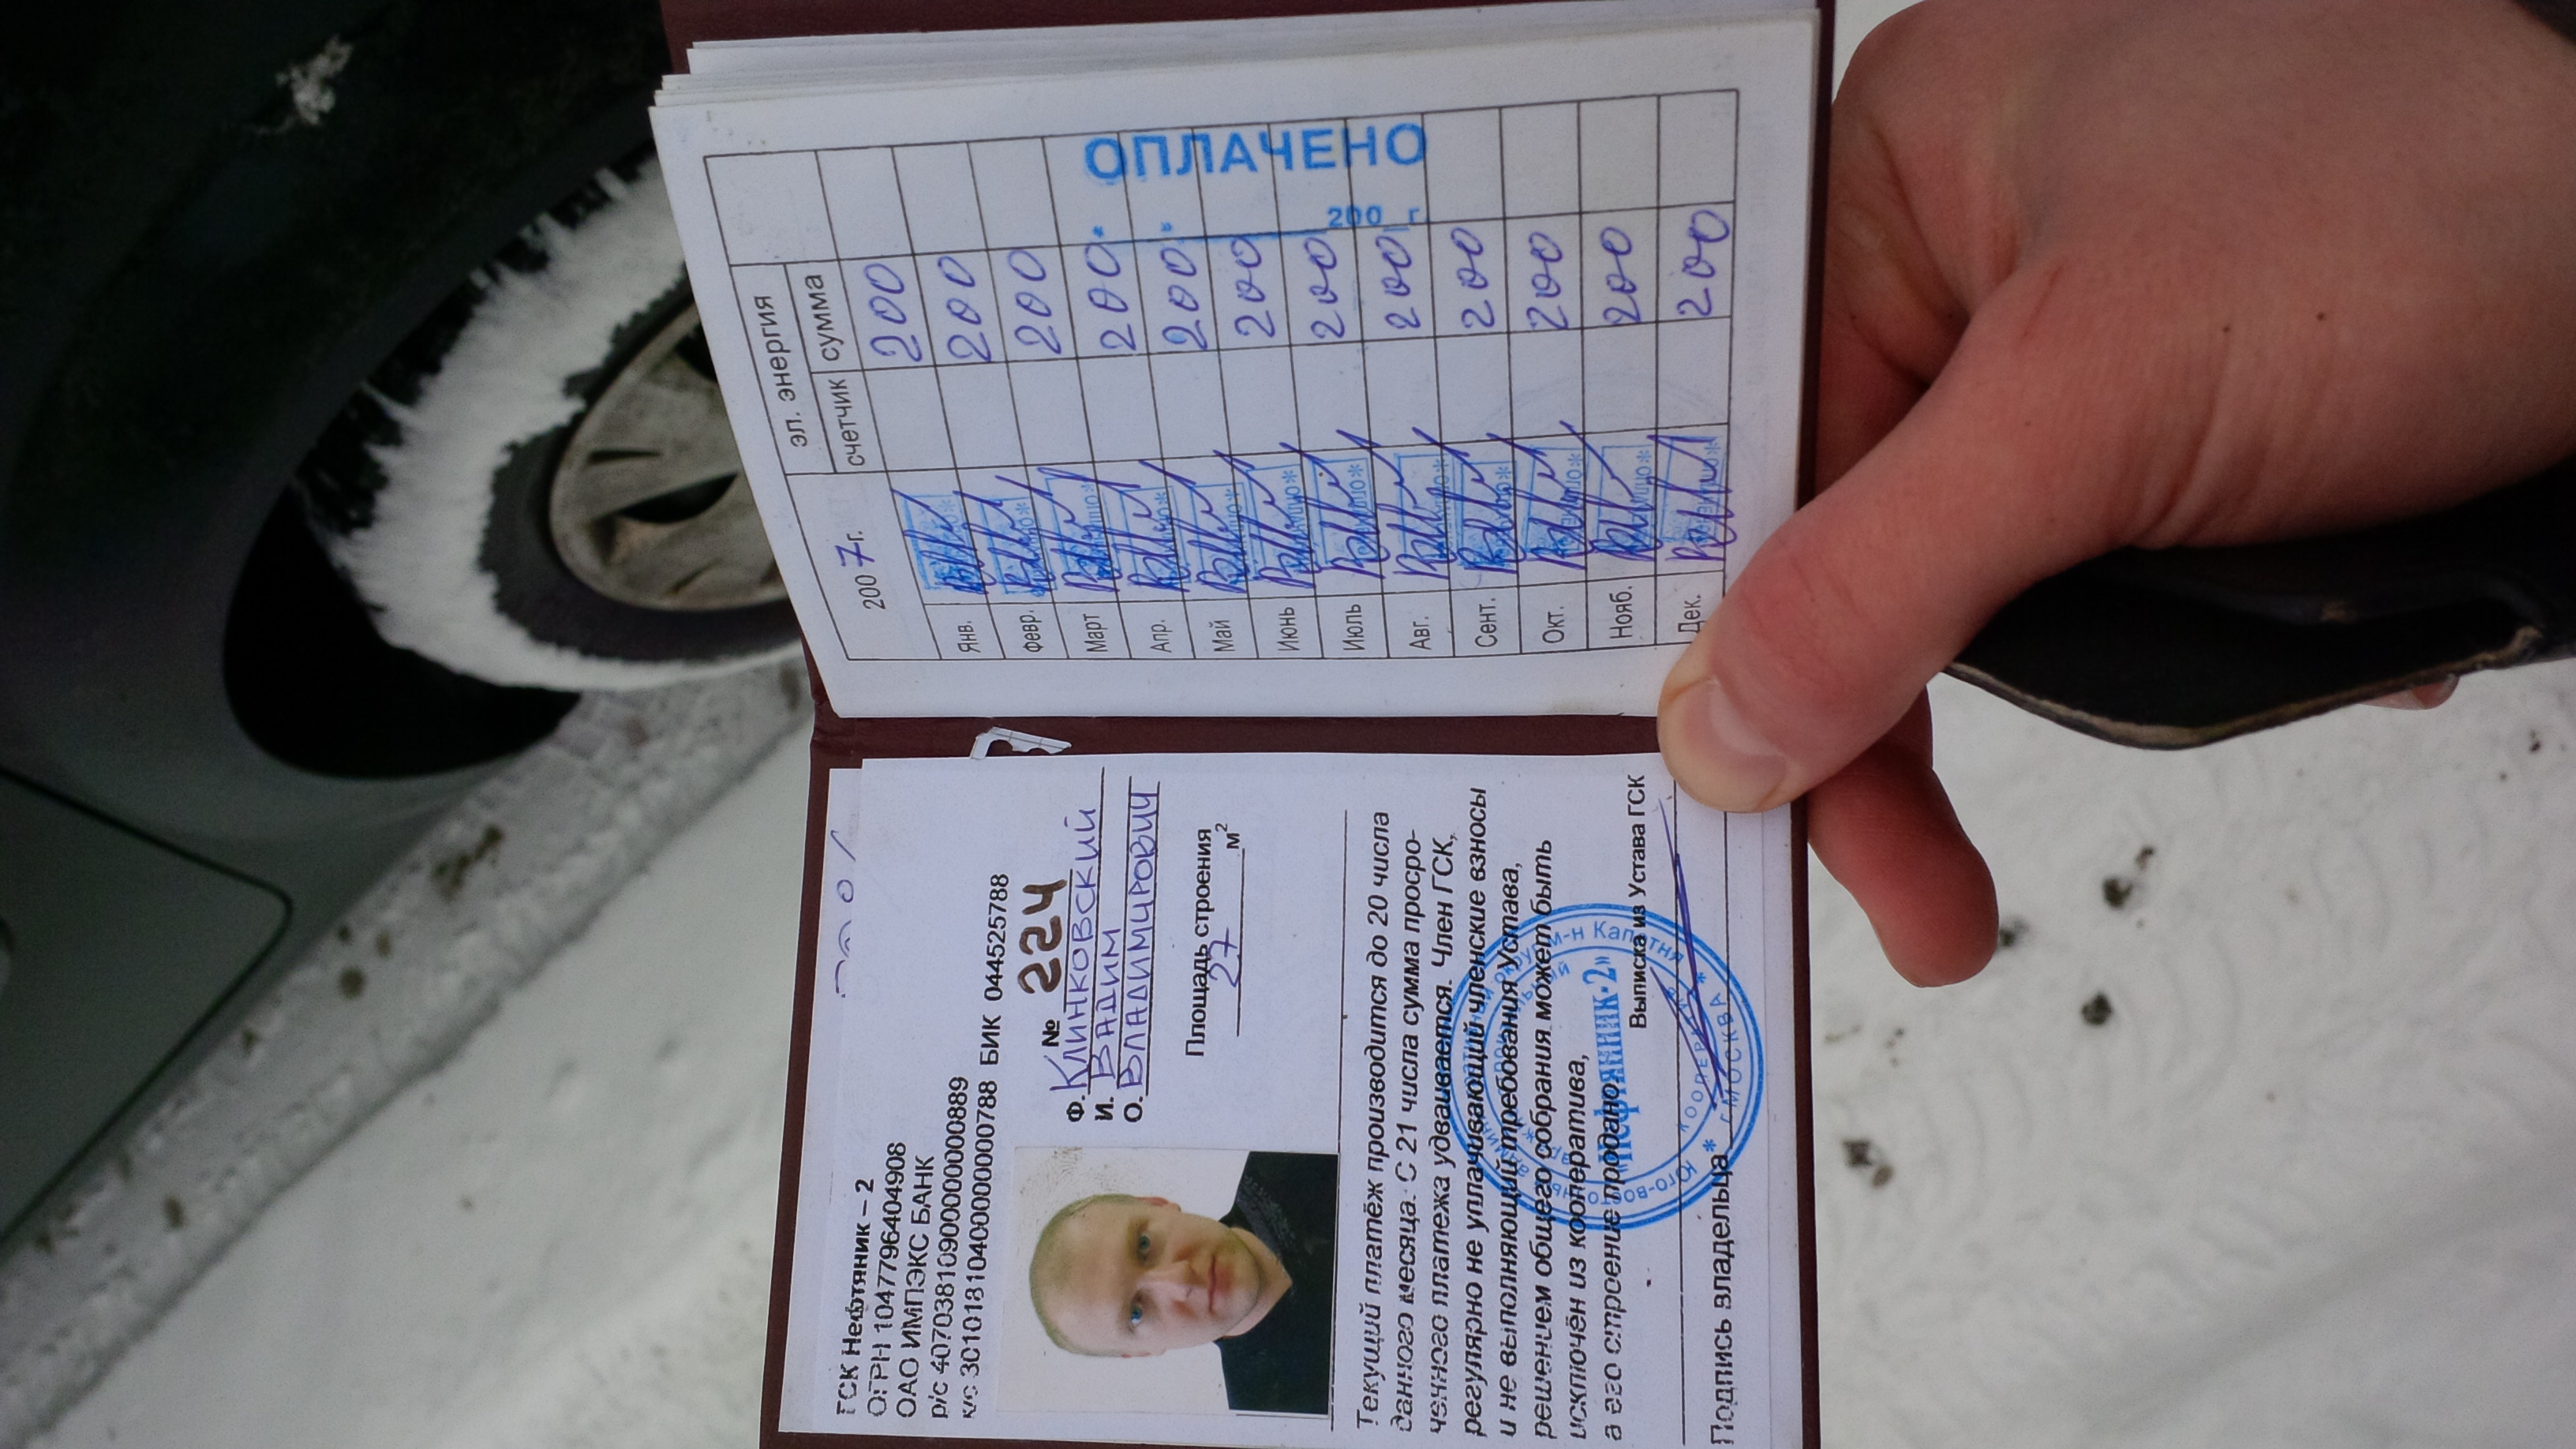 ГСК Нефтяник – 2
ОГРН 1047796404908
ОАО ИМПЭКС БАНК
р/с 40703810900000000889
к/с 30101810400000000788 БИК 044525788
№ 224
Ф. Клинковский
И. Вадим
О. Владимирович
Площадь строения
27 м²
Текущий платёж производится до 20 числа
данного месяца. С 21 числа сумма просро-
ченного платежа удваивается. Член ГСК,
регулярно не уплачивающий членские взносы
и не выполняющий требования Устава,
решением общего собрания может быть
исключён из кооператива,
а его строение продано.
Выписка из Устава ГСК
Подпись владельца
«Нефтянник-2»
КООПЕРАТИВ
* г.МОСКВА *
2007г.
эл. энергия
счетчик сумма
Янв. 200
Февр. 200
Март 200
Апр. 200
Май 200
Июнь 200
Июль 200
Авг. 200
Сент. 200
Окт. 200
Нояб. 200
Дек. 200
ОПЛАЧЕНО
200 г.